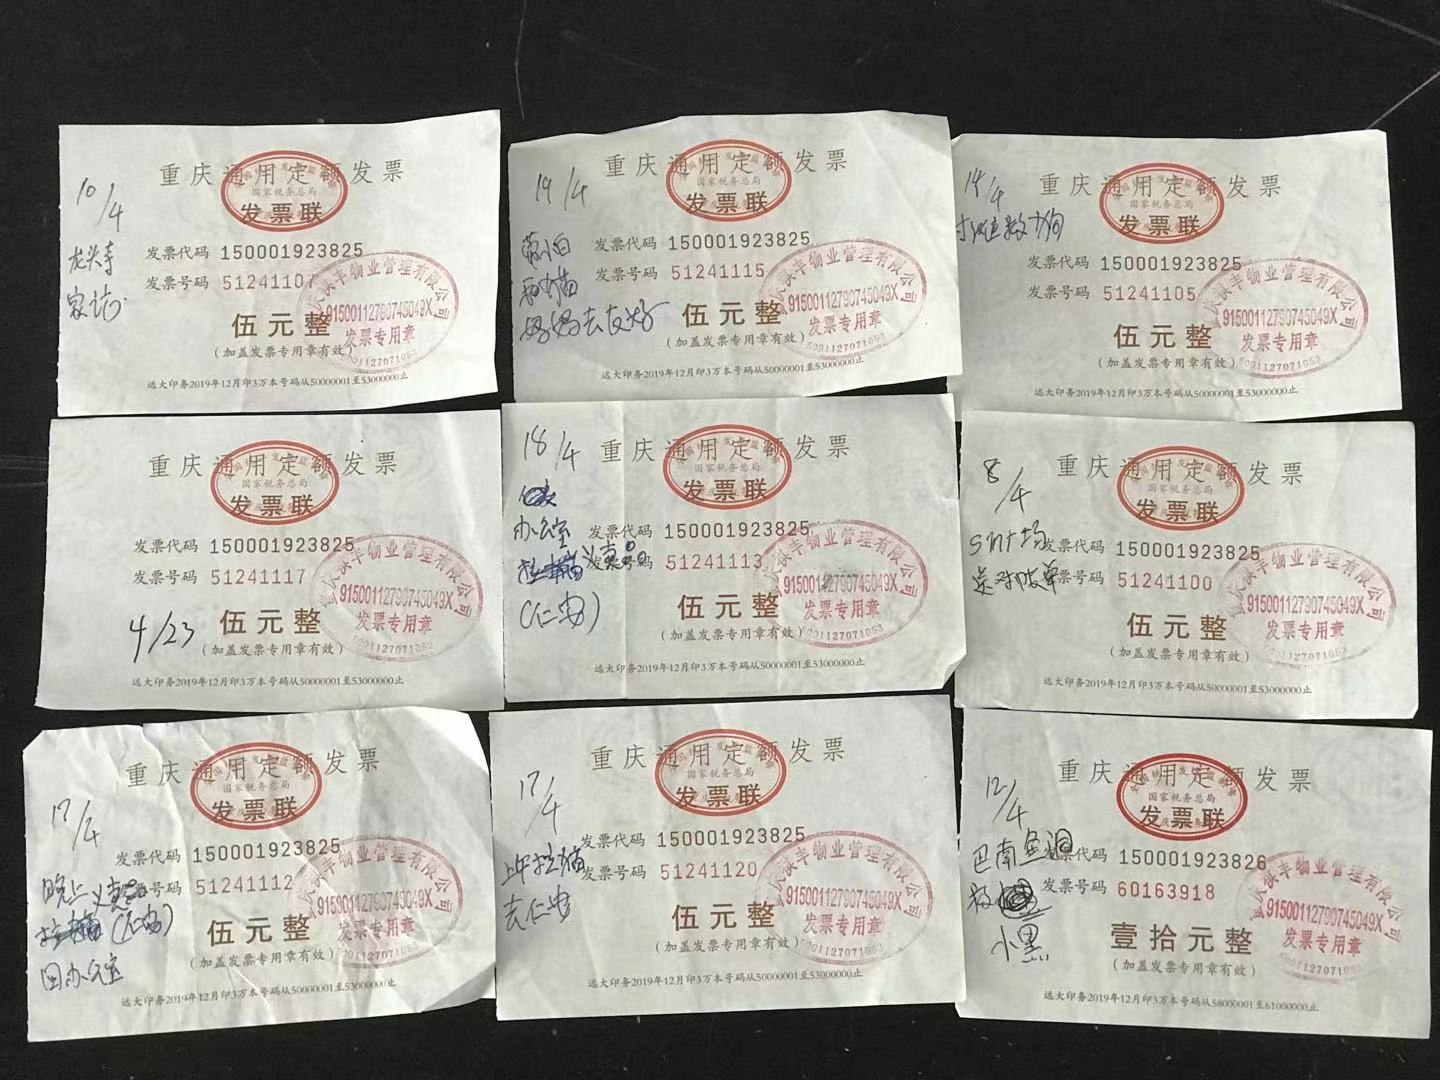 重庆通用定额发票
国家税务总局
发票联
10/4
龙头寺
家访
发票代码 150001923825
发票号码 51241107
伍元整
(加盖发票专用章有效)
物业管理有限公司
91500112790745049X
发票专用章
5001127071053
远大印务2019年12月印3万本号码从50000001至53000000止
重庆通用定额发票
国家税务总局
发票联
19/4
带小白
和奶猫
妈妈去友好
发票代码 150001923825
发票号码 51241115
伍元整
(加盖发票专用章有效)
物业管理有限公司
91500112790745049X
发票专用章
5001127071053
远大印务2019年12月印3万本号码从50000001至53000000止
重庆通用定额发票
国家税务总局
发票联
14/4
救狗
发票代码 150001923825
发票号码 51241105
伍元整
(加盖发票专用章有效)
物业管理有限公司
91500112790745049X
发票专用章
5001127071053
远大印务2019年12月印3万本号码从50000001至53000000止
重庆通用定额发票
国家税务总局
发票联
发票代码 150001923825
发票号码 51241117
4/23
伍元整
(加盖发票专用章有效)
物业管理有限公司
91500112790745049X
发票专用章
5001127071053
远大印务2019年12月印3万本号码从50000001至53000000止
重庆通用定额发票
国家税务总局
发票联
18/4
办公室
义卖
(仁安)
发票代码 150001923825
发票号码 51241113
伍元整
(加盖发票专用章有效)
物业管理有限公司
91500112790745049X
发票专用章
5001127071053
远大印务2019年12月印3万本号码从50000001至53000000止
重庆通用定额发票
国家税务总局
发票联
8/4
SM广场
送对账单
发票代码 150001923825
发票号码 51241100
伍元整
(加盖发票专用章有效)
物业管理有限公司
91500112790745049X
发票专用章
5001127071053
远大印务2019年12月印3万本号码从50000001至53000000止
重庆通用定额发票
国家税务总局
发票联
17/4
晚上义卖
(仁安)
回办公室
发票代码 150001923825
发票号码 51241112
伍元整
(加盖发票专用章有效)
物业管理有限公司
91500112790745049X
发票专用章
5001127071053
远大印务2019年12月印3万本号码从50000001至53000000止
重庆通用定额发票
国家税务总局
发票联
17/4
上午拉猫
去仁安
发票代码 150001923825
发票号码 51241120
伍元整
(加盖发票专用章有效)
物业管理有限公司
91500112790745049X
发票专用章
5001127071053
远大印务2019年12月印3万本号码从50000001至53000000止
重庆通用定额发票
国家税务总局
发票联
12/4
巴南鱼洞
小黑
发票代码 150001923826
发票号码 60163918
壹拾元整
(加盖发票专用章有效)
物业管理有限公司
91500112790745049X
发票专用章
5001127071053
远大印务2019年12月印3万本号码从58000001至61000000止